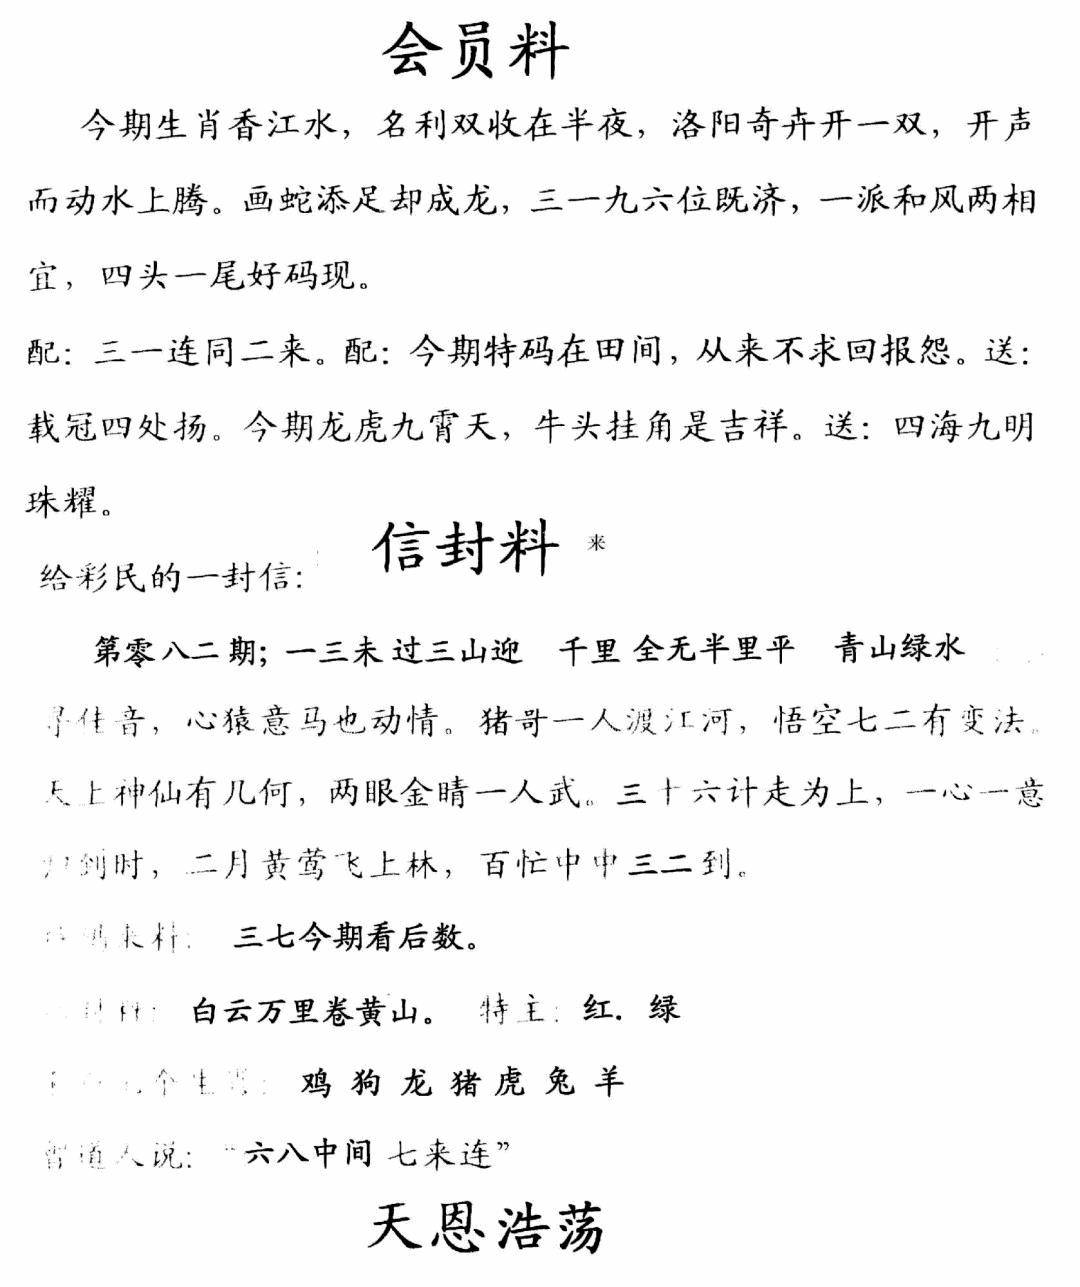 会员料
今期生肖香江水，名利双收在半夜，洛阳奇卉开一双，开声
而动水上腾。画蛇添足却成龙，三一九六位既济，一派和风两相
宜，四头一尾好码现。
配：三一连同二来。配：今期特码在田间，从来不求回报怨。送：
载冠四处扬。今期龙虎九霄天，牛头挂角是吉祥。送：四海九明
珠耀。
信封料 来
给彩民的一封信：
第零八二期；一三未过三山迎 千里全无半里平 青山绿水
寻佳音，心猿意马也动情。猪哥一人渡江河，悟空七二有变法。
天上神仙有几何，两眼金睛一人武。三十六计走为上，一心一意
到时，二月黄莺飞上林，百忙中中三二到。
来料： 三七今期看后数。
白云万里卷黄山。 特主：红．绿
个生肖： 鸡 狗 龙 猪 虎 兔 羊
曾道人说：“六八中间 七来连”
天恩浩荡